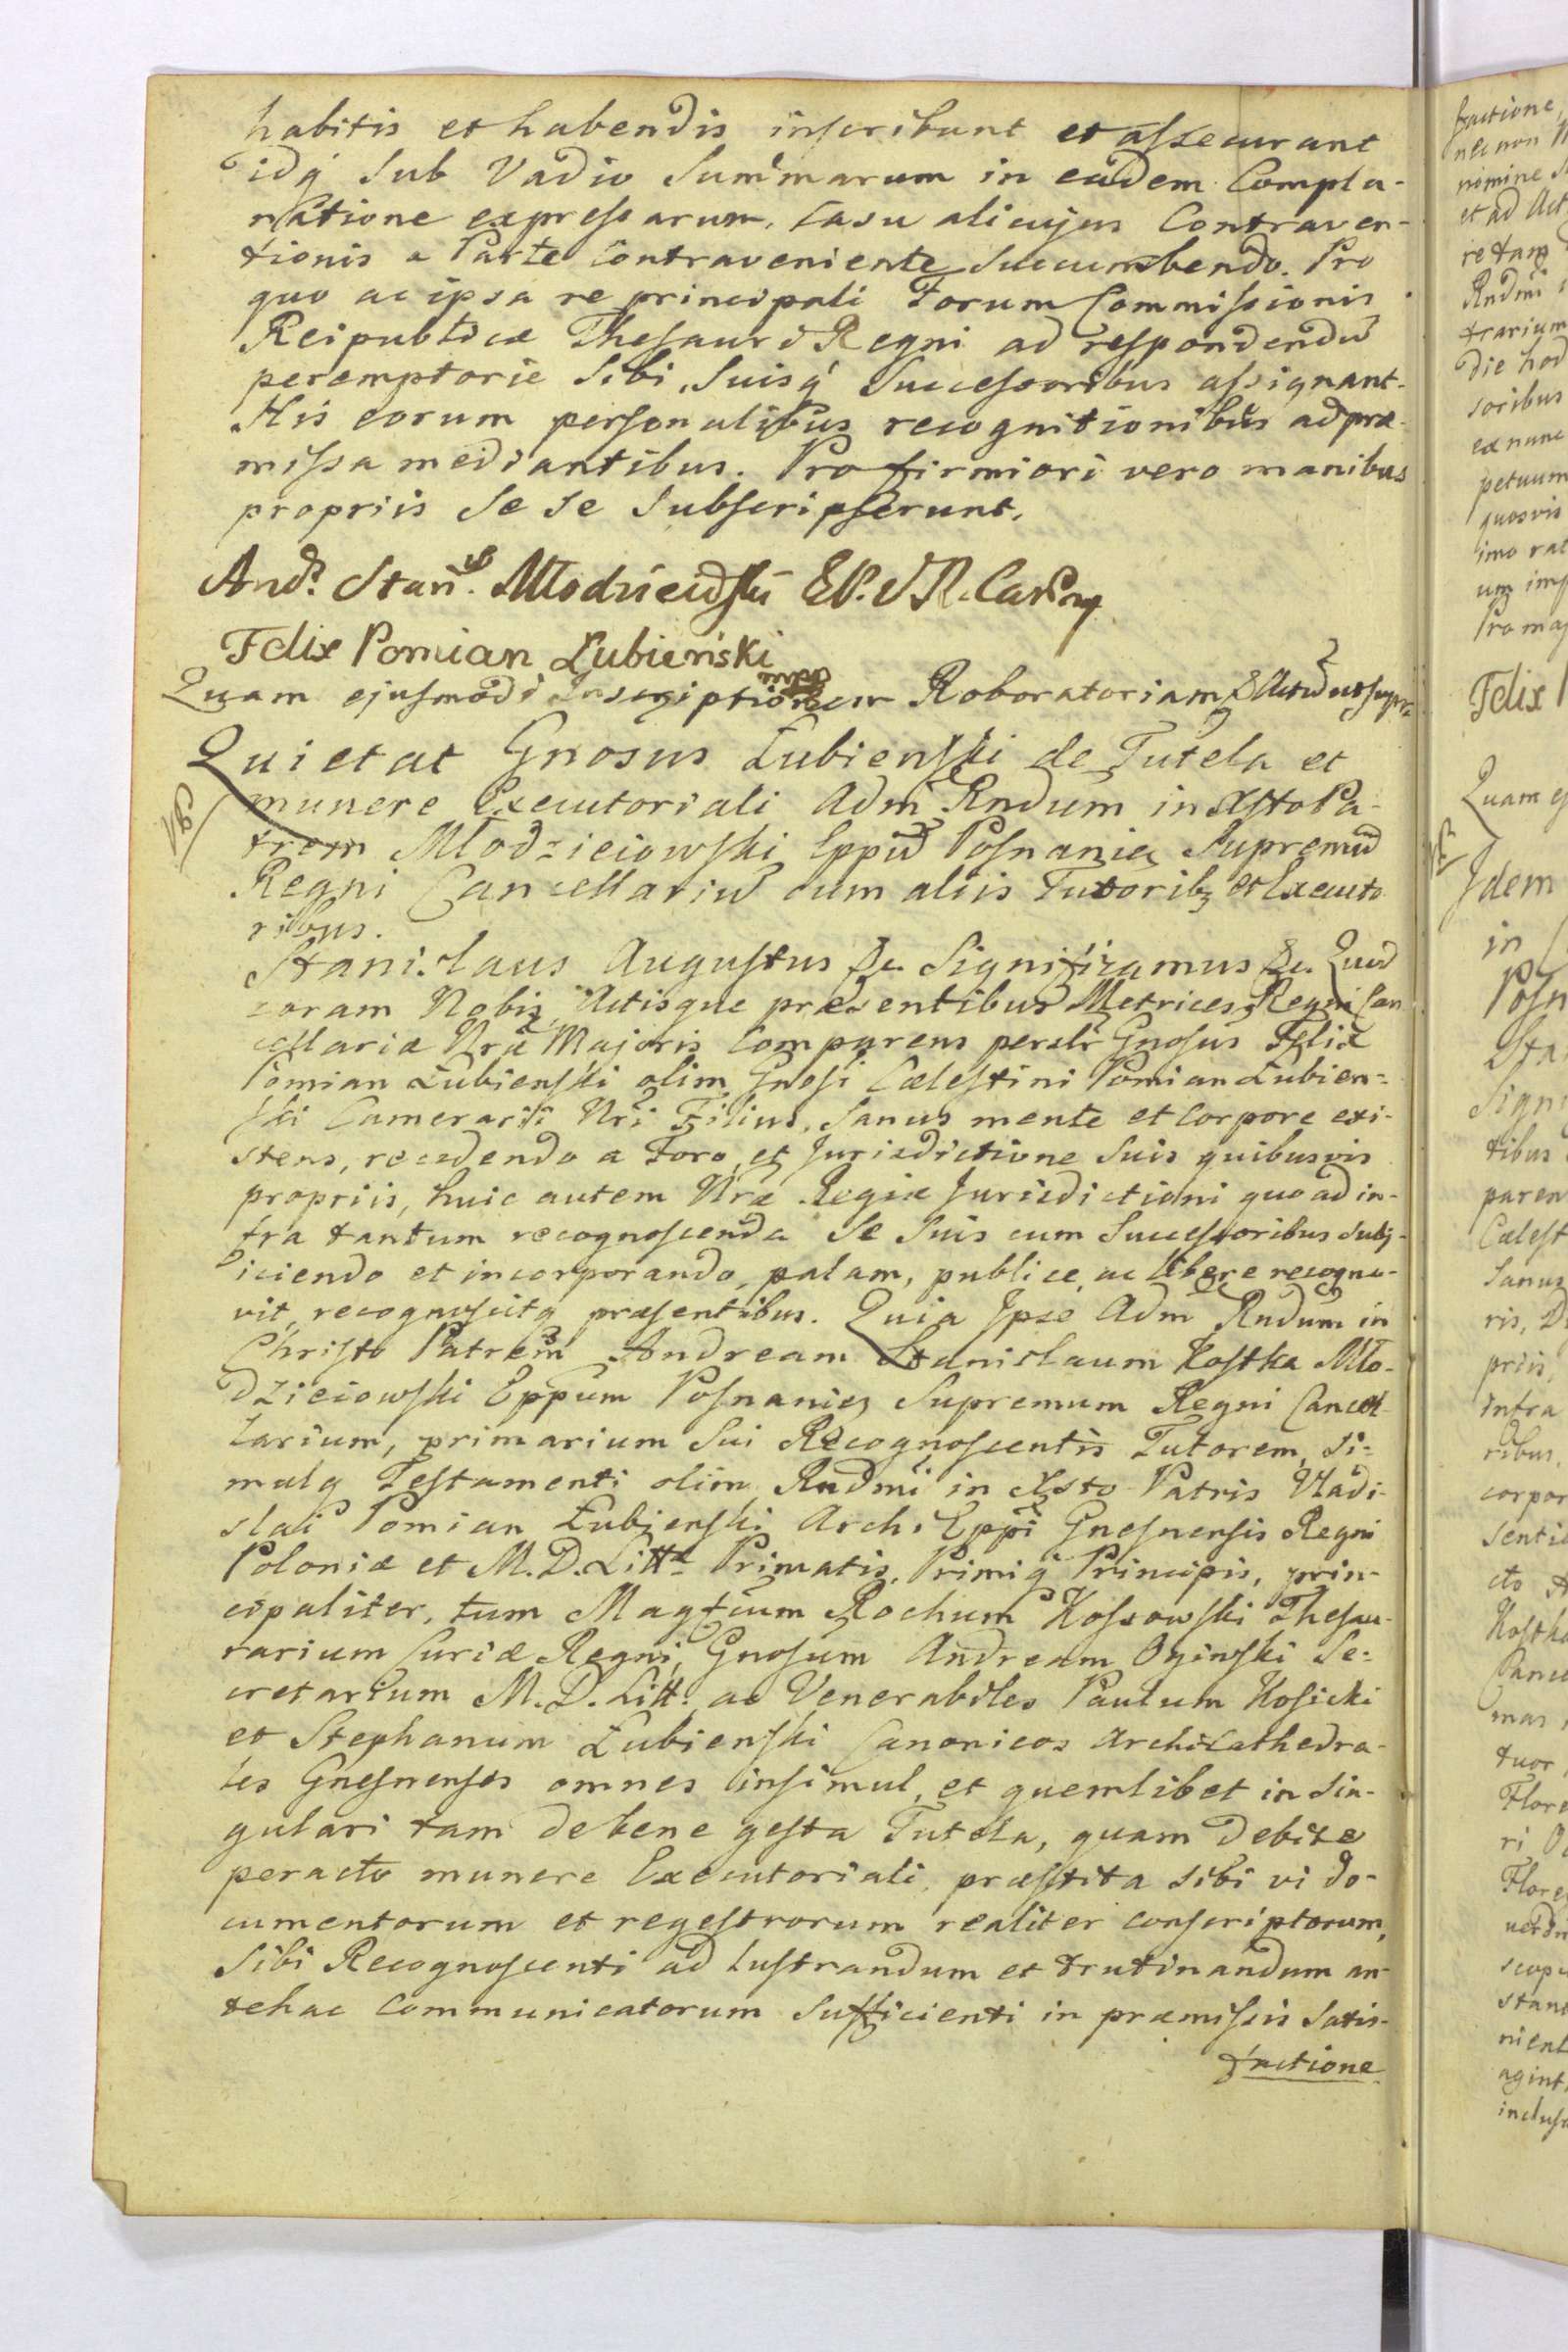 habitis et habendis inscribunt et assecurant
idq́ sub Vadio Summarum in eadem Compla-
natione expressarum, Casu alicujus Contraven-
tionis a Parte Contraveniente succumbendo. Pro
quo ac ipsa re principali Forum Commissionis
Reipublicæ Thesauri Regni ad respondendū
peremptorie sibi, suisq́ Successoribus assignant.
His eorum personalibus recognitionibus ad præ-
missa mediantibus. Pro firmiori vero manibus
propriis se se subscripserunt.
And. Stan. Młodzieiowski EP. S R. Canc
Felix Pomian Łubieński
mpp
Quam ejusmodi Inscriptionem Roboratoriam & Actū ut supra
Quietat Gnosus Łubienski de Tutela et
munere Executoriali Adm Rndum in Xsto Pa-
trem Młodzieiowski Eppū Posnaniæ Supremū
Regni Cancellariū cum aliis Tutoribz et Executo
ribus.
Stanislaus Augustus &c. Significamus &c. Quod
coram Nobis, Actisque præsentibus Metrices Regni Can
cellariæ Nræ Majoris Comparens persltr Gnosus Felix
Pomian Łubienski olim Gnosi Cælestini Pomian Łubien=
ski Camerarii Nri Filius, sanus mente et Corpore exi-
stens, recedendo a Foro, et Jurisdictione suis quibusvis
propriis, huic autem Nræ Regiæ Jurisdictioni quo ad in-
fra tantum recognoscenda se suis cum Successoribus subj-
iciendo et incorporando, palam, publice, ac libere recogno-
vit, recognoscitq præsentibus. Quia Ipse Adm Rndum in
Christo Patrem Andream Stanislaum Kostka Mło-
dzieiowski Eppum Posnaniæ, Supremum Regni Cancel-
larium, primarium sui Recognoscentis Tutorem, si=
mulq Testamenti olim Rndmi in Xsto Patris Vladi-
slai Pomian Łubienski Archi Eppi Gnesnensis Regni
Poloniæ et M. D. Litt. Primatis, Primiq́ Principis, prin-
cipaliter, tum Magfcum Rochum Kossowski Thesau-
rarium Curiæ Regni, Gnosum Andream Oginski Se=
cretarium M. D. Litt. ac Venerabiles Paulum Kosicki
et Stephanum Łubienski Canonicos Archicathedra-
les Gnesnenses omnes insimul, et quemlibet in sin-
gulari tam de bene gesta Tutela, quam debite
peracto munere Executoriali, præstita sibi vi do-
cumentorum et regestrorum realiter conscriptorum,
sibi Recognoscenti ad lustrandum et trutinandum an-
tehac communicatorum sufficienti in præmissis satis-
factione
fractione,
nec non
nomine
et ad Act
retam
Rndmi
trarium
die hod
soribus
ex nunc
petuum
quosvis
imo rat
Pro maj
Felix
Quam ej
Idem
in
Posn
Sta
Signi
tibus
paren
Cælest
sanus
ris,
priis,
infra
ribus,
corpor
senti
cto
Kostka
Cance
mas
tuor
Flore
ri
Flore
scop
stan
nient
agint
inclus